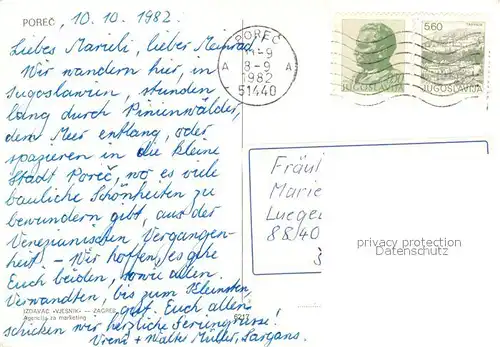 POREČ, 10.10.1982.
Liebes Marieli, lieber Meinrad,
Wir wandern hier, in
Jugoslawien, stunden
lang durch Pinienwälder,
dem Meer entlang, oder
spazieren in die kleine
Stadt Poreč, wo es viele
bauliche Schönheiten zu
bewundern gibt, aus der
Venezianischen Vergangen-
heit. – Wir hoffen, es gehe
Euch beiden, sowie allen
Verwandten, bis zum Kleinsten,
gut. Euch allen
schicken wir herzliche Feriengrüsse!
Vreni + Walter Müller, Sargans.
IZDAVAČ »VJESNIK« — ZAGREB
Agencija za marketing
8217
POREČ
8-9
1982
A A
51440
JUGOSLAVIJA
5.60
JUGOSLAVIJA
Fräul
Marie
Luege
88/40
privacy protection
Datenschutz